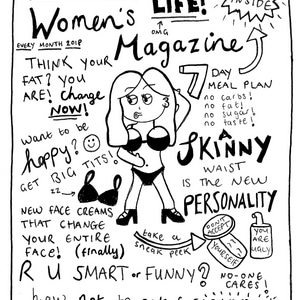 LIFE!
INSIDES
Women's
OMG
EVERY MONTH 2018
Magazine
THINK YOUR
FAT? YOU
ARE! Change
NOW!
7 DAY
MEAL PLAN
no carbs!
no fat!
no sugar!
no taste!
want to be
happy?
GET BIG TITS!
A
SKINNY
WAIST
IS the NEW
PERSONALITY
NEW FACE CREAMS
THAT CHANGE
YOUR ENTIRE
FACE! (finally)
take a
sneak peek
DON'T
ACCEPT
YOURSELF
YOU
ARE
UGLY
R U SMART or FUNNY?
NO-ONE
CARES!
how not be